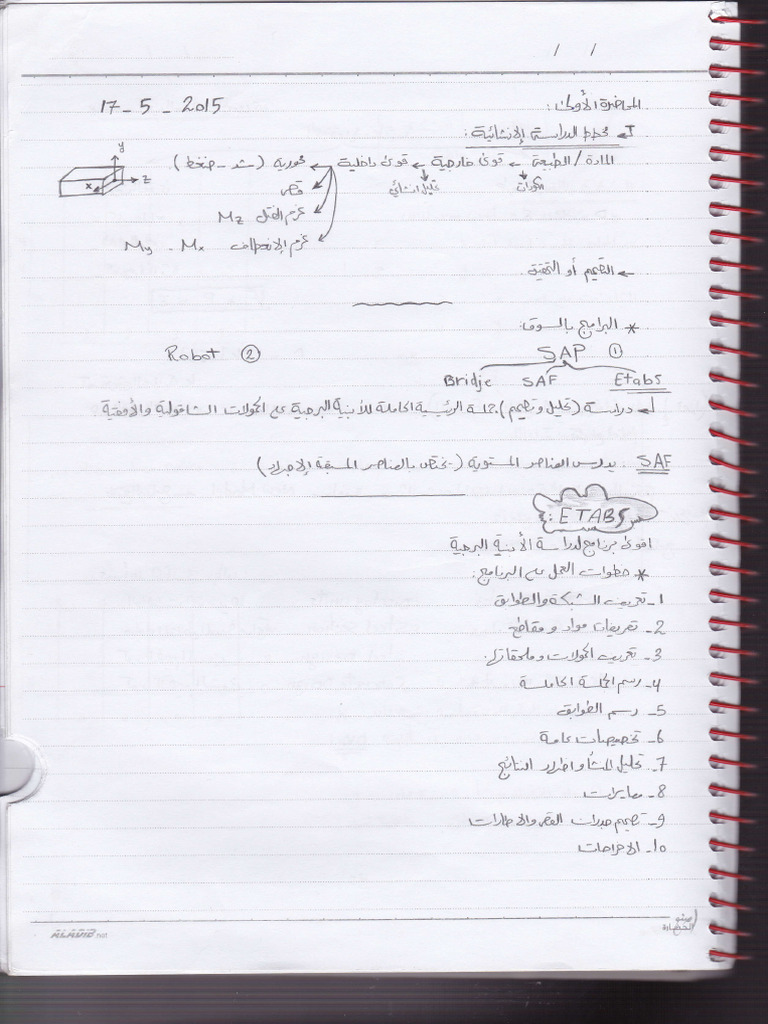 / /
المحاضرة الأولى:
17 - 5 - 2015
مخطط الدراسة الإنشائية:
المادة / الطبيعة ← قوى خارجية ← قوى داخلية ← محورية (شد - ضغط)
حمولات
تحليل انشائي
قص
عزم الفتل Mz
عزم الإنعطاف Mx - My
y
z
x
← التصميم أو التحقيق.
* البرامج بالسوق:
① SAP
② Robot
Etabs SAF Bridje
دراسة (تحليل وتصميم) جملة الرئيسية الحاملة للأبنية البرجية على الحمولات الشاقولية والأفقية
SAF. يدرس العناصر المستوية (يختص بالعناصر المسبقة الإجهاد)
ETABS:
اقوى برنامج لدراسة الأبنية البرجية
* خطوات العمل على البرنامج:
1- تعريف الشبكة والطوابق
2- تعريفات مواد و مقاطع
3- تعريف الحمولات وملحقاتها.
4- رسم الجملة الحاملة
5- رسم الطوابق
6- تخصيصات عامة
7- تحليل المنشأ و اظهار النتائج
8- معايرات
9- تصميم جدران القص والاطارات
10- الاخراجات
ALADIB